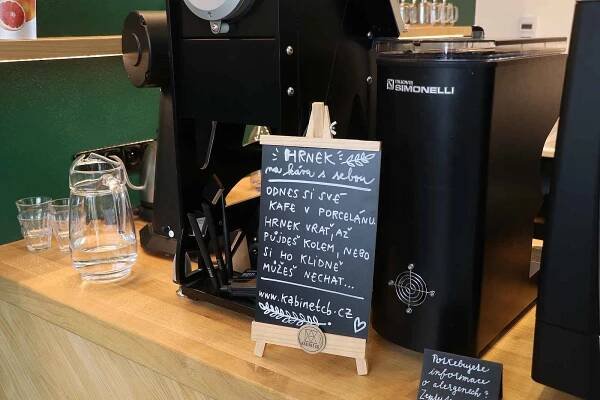 NUOVA
SIMONELLI
HRNEK
na kávu s sebou
ODNES SI SVÉ
KAFE V PORCELÁNU.
HRNEK VRAŤ, AŽ
PŮJDEŠ KOLEM, NEBO
SI HO KLIDNĚ
MŮŽEŠ NECHAT...
www.kabinetcb.cz
Potřebujete
informace
o alergenech?